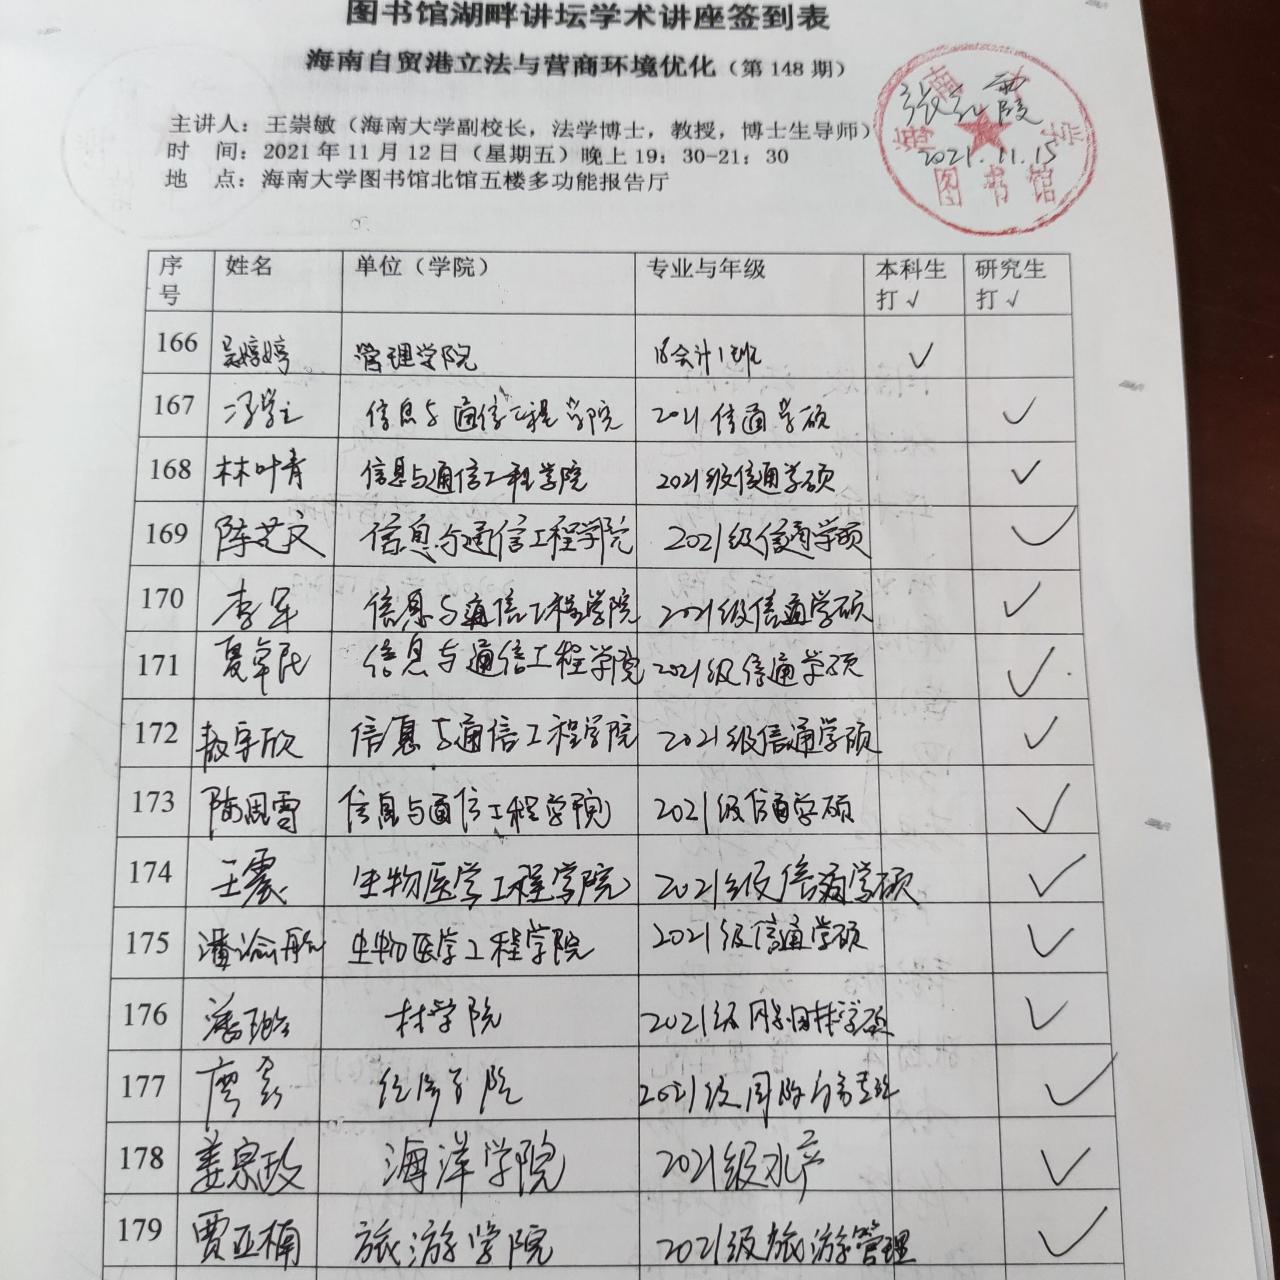 图书馆湖畔讲坛学术讲座签到表
海南自贸港立法与营商环境优化（第 148 期）
主讲人：王崇敏（海南大学副校长，法学博士，教授，博士生导师）
时 间：2021 年 11 月 12 日（星期五）晚上 19：30-21：30
地 点：海南大学图书馆北馆五楼多功能报告厅
海南大学
图书馆
2021.11.15
序号 姓名 单位（学院） 专业与年级 本科生打√ 研究生打√
166 吴婷婷 管理学院 18会计1班 √
167 信息与通信工程学院 2021信通学硕 √
168 林叶青 信息与通信工程学院 2021级信通学硕 √
169 陈艺文 信息与通信工程学院 2021级信通学硕 √
170 李军 信息与通信工程学院 2021级信通学硕 √
171 夏卓民 信息与通信工程学院 2021级信通学硕 √
172 敖宇欣 信息与通信工程学院 2021级信通学硕 √
173 陈思雪 信息与通信工程学院 2021级信通学硕 √
174 王震 生物医学工程学院 2021级信通学硕 √
175 生物医学工程学院 2021级信通学硕 √
176 林学院 2021级 √
177 廖 经济学院 2021级国际 √
178 姜宗政 海洋学院 2021级水产 √
179 贾亚楠 旅游学院 2021级旅游管理 √